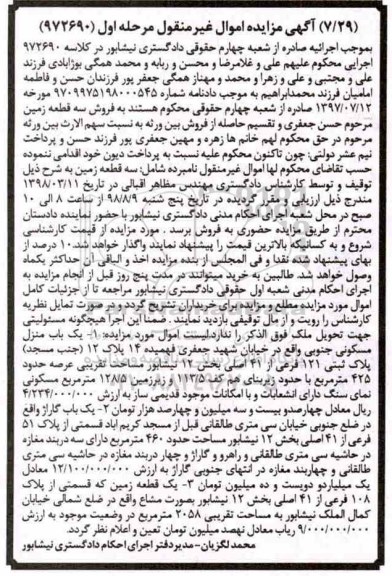 (۷/۲۹) آگهی مزایده اموال غیرمنقول مرحله اول (۹۷۲۶۹۰)
بموجب اجرائیه صادره از شعبه چهارم حقوقی دادگستری نیشابور در کلاسه ۹۷۲۶۹۰
اجرایی محکوم علیهم علی و غلامرضا و محسن و ربابه و محمد همگی بوژآبادی فرزند
علی و مجتبی و علی و زهرا و محمد و مهناز همگی جعفر پور فرزندان حسن و فاطمه
امامیان فرزند محمدابراهیم به موجب دادنامه شماره ۹۷۰۹۹۷۵۱۹۸۰۰۰۵۴۵ مورخه
۱۳۹۷/۰۷/۱۲ صادره از شعبه چهارم حقوقی محکوم هستند به فروش سه قطعه زمین
مرحوم حسن جعفری و تقسیم حاصله از فروش بین ورثه به نسبت سهم الارث بین ورثه
مرحوم در حق محکوم لهم خانم ها زهره و مهین جعفری پور فرزند حسن و پرداخت
نیم عشر دولتی: چون تاکنون محکوم علیه نسبت به پرداخت دیون خود اقدامی ننموده
حسب تقاضای محکوم لها اموال غیرمنقول نامبرده شامل: سه قطعه زمین به شرح ذیل
توقیف و توسط کارشناس دادگستری مهندس مظاهر اقبالی در تاریخ ۱۳۹۸/۰۳/۱۱
مندرج ذیل ارزیابی و مقرر گردیده در تاریخ پنج شنبه ۹۸/۸/۹ از ساعت ۸ الی ۱۰
صبح در محل شعبه اول اجرای احکام مدنی دادگستری نیشابور با حضور نماینده دادستان
محترم از طریق مزایده حضوری به فروش برسد . مورد مزایده از قیمت کارشناسی
شروع و به کسانیکه بالاترین قیمت را پیشنهاد نمایند واگذار خواهد شد.۱۰ درصد از
بهای پیشنهاد شده نقدا و فی المجلس از بنده مزایده اخذ و الباقی آن حداکثر یکماه
وصول خواهد شد. طالبین به خرید میتوانند در مدت پنج روز قبل از انجام مزایده به
اجرای احکام مدنی شعبه اول حقوقی دادگستری نیشابور مراجعه تا از جزئیات کامل
اموال مورد مزایده مطلع و مزایده برای خریداران تشریح گردد و در صورت تمایل نظریه
کارشناس را رویت و از مال توقیفی بازدید نمایند . ضمنا این اجرا هیچگونه مسئولیتی
جهت تحویل ملک فوق الذکر را ندارد.لیست اموال مورد مزایده: ۱- یک باب منزل
مسکونی جنوبی واقع در خیابان شهید جعفری فهمیده ۱۴ پلاک ۱۲ (جنب مسجد)
پلاک ثبتی ۱۲۱ فرعی از ۴۱ اصلی بخش ۱۲ نیشابور مساحت تقریبی عرصه حدود
۴۲۵ مترمربع با حدود زیربنای هم کف ۱۱۳۵ و زیرزمین ۱۲۸۵ مترمربع مسکونی
نمای سنگ دارای انشعابات و با امکانات موجود قدیمی ساز به ارزش ۴/۲۳۴/۰۰۰/۰۰۰
ریال معادل چهارصدو بیست و سه میلیون و چهارصد هزار تومان ۲- یک باب گاراژ واقع
در ضلع جنوبی خیابان سی متری طالقانی قبل از مسجد کریم اباد قسمتی از پلاک ۵۱
فرعی از ۴۱ اصلی بخش ۱۲ نیشابور مساحت حدود ۴۶۰ مترمربع دارای سه دربند مغازه
در حاشیه سی متری طالقانی و راهرو و گاراژ و چهار دربند مغازه در حاشیه سی متری
طالقانی و چهاربند مغازه در انتهای جنوبی گاراژ به ارزش ۱۲/۱۰۰/۰۰۰/۰۰۰ معادل
یک میلیاردو دویست و ده میلیون تومان ۳- یک قطعه زمین که قسمتی از پلاک
۱۰۸ فرعی از ۴۱ اصلی بخش ۱۲ نیشابور بصورت مشاع واقع در ضلع شمالی خیابان
کمال الملک نیشابور به مساحت تقریبی ۲۰۵۸ مترمربع در وضعیت موجود به ارزش
۹/۰۰۰/۰۰۰/۰۰۰ ریاب معادل نهصد میلیون تومان تعین و اعلام نظر گردد.
محمد لگزیان- مدیردفتر اجرای احکام دادگستری نیشابور